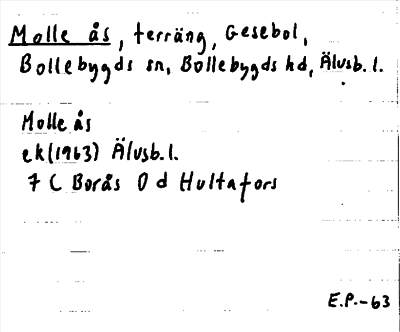 Molle ås, terräng, Gesebol,
Bollebygds sn, Bollebygds hd, Älvsb. l.
Molle ås
ek (1963) Älvsb. l.
7 C Borås 0 d Hultafors
E.P.-63